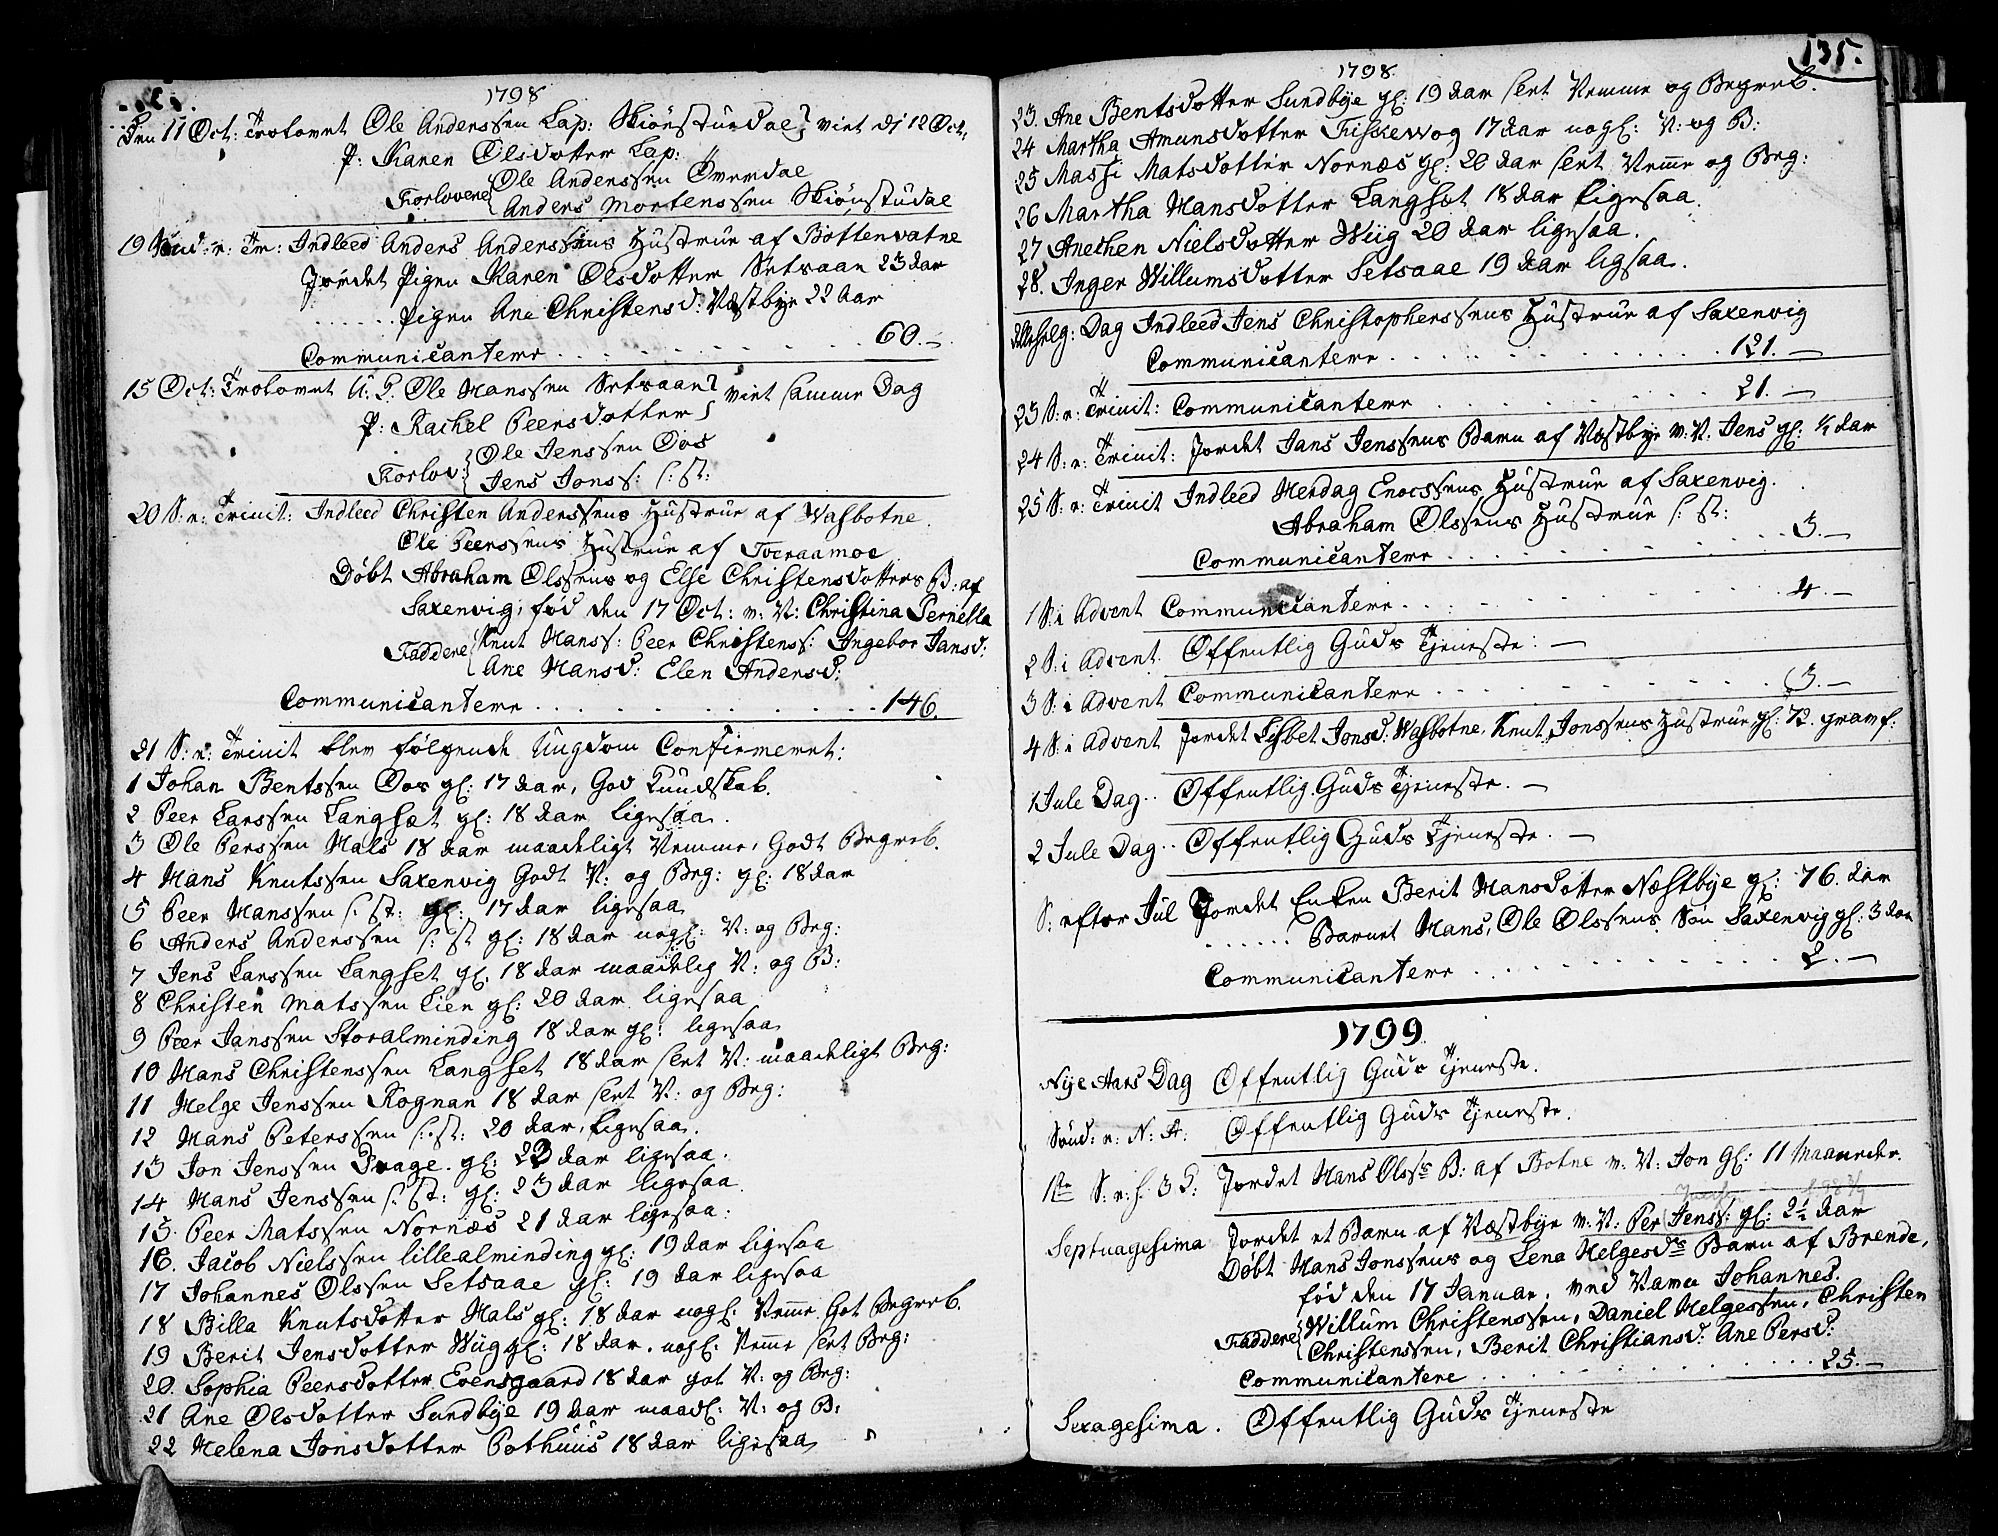 1798
Den 11 Oct: Trolovet Ole Anderssen Lap: Skiønstuedal } viet d: 12 Oct:
P: Karen Olsdotter Lap:
Forlovere { Ole Anderssen Øverdal
Anders Mortenssen Skiønstudal
19 Sønd: e: Tr: Indleed Anders Anderssens Hustrue af Bottenvatne
Jordet Pigen Karen Olsdotter Setsaae 23 Aar
...... Pigen Ane Christensd: Væstbye 22 Aar
Communicantere . . . . . . . . . . 60. –
15 Oct: Trolovet U: K: Ole Hanssen Setsaae } viet samme Dag
P: Rachel Peersdotter
Forlov: { Ole Jenssen Oos
Jens Jonss: s: st:
20 S: e: Trinit: Indleed Christen Anderssens Hustrue af Wasbotne.
Ole Peerssens Hustrue af Tveraamoe
Døbt Abraham Olssens og Else Christensdotters B: af
Saxenvig, fød den 17 Oct: m: N: Christina Pernella
Faddere { Knut Hanss: Peer Christenss: Ingebor Jansd:
Ane Hansd: Elen Andersd:
Communicantere . . . . . . . . . . 146.
21 S: e: Trinit blev følgende Ungdom Confirmeret:
1 Johan Bentssen Oos gl: 17 Aar, God Kundskab.
2 Peer Larssen Langset gl: 18 Aar ligesaa.
3 Ole Perssen Hals 18 Aar maadeligt Nemme, Godt Begreb.
4 Hans Knutssen Saxenvig Godt N: og Beg: gl: 18 Aar
5 Peer Hanssen s: st: gl: 17 Aar ligesaa
6 Anders Anderssen s: st gl: 18 Aar nogl: N: og Beg:
7 Jens Larssen Langset gl: 18 Aar maadelig N: og B:
8 Christen Matssen Lien gl: 20 Aar ligesaa
9 Peer Janssen Storalminding 18 Aar gl: ligesaa
10 Hans Christenssen Langset 18 Aar slet N: maadeligt Beg:
11 Helge Jenssen Rognan 18 Aar slet N: og Beg:
12 Hans Peterssen s: st: 20 Aar, ligesaa.
13 Jon Jenssen Drage gl: 23 Aar ligesaa.
14 Hans Jenssen s: st: gl: 23 Aar ligesaa.
15. Peer Matssen Nornæs 21 Aar ligesaa:
16. Jacob Nielssen lillealminding gl: 19 Aar ligesaa
17 Johannes Olssen Setsaae gl: 19 Aar ligesaa
18 Billa Knutsdotter Hals gl: 18 Aar nogl: Nemme Got Begreb.
19 Berit Jensdotter Wiig gl: 18 Aar. nogl: Nemme slet Beg:
20. Sophia Peersdotter Evensgaard 18 Aar got N: og Beg:
21 Ane Olsdotter Sundbye 19 Aar maadl: N: og B:
22 Helena Jonsdotter Pothuus 18 Aar ligesaa
135.
1798
23. Ane Bentsdotter Sundbye gl: 19 Aar slet Nemme og Begreb.
24 Martha Amunsdotter Fiskewog 17 Aar nogl: N: og B:
25 Massi Matsdotter Nornæs gl: 20 Aar slet Nemme og Beg:
26 Martha Hansdotter Langset 18 Aar ligesaa.
27 Anethen Nielsdotter Wiig 20 Aar ligesaa.
28. Inger Willumsdotter Setsaae 19 Aar ligsaa.
Allehelg: Dag Indleed Jens Christopherssens Hustrue af Saxenvig
Communicantere . . . . . . . . . . 121. –
23 S: e: Trinit: Communicantere . . . . . . . . 21. –
24 S: e: Trinit: Jordet Jans Jenssens Barn af Væstbye v: N. Jens gl: ½ Aar
25 S: e: Trinit Indleed Herdag Enocssens Hustrue af Saxenvig.
Abraham Olssens Hustrue s: st:
Communicantere . . . . . . . . . . 3. –
1 S: i Advent Communicantere . . . . . . . . . . 4. –
2 S: i Advent. Offentlig Guds Tjeneste: –
3 S: i Advent Communicantere . . . . . . . . . . 3. –
4 S: i Advent Jordet Lisbet Jonsd: Wasbotne, Knut Jonssens Hustrue gl: 72.
1 Jule Dag. . Offentlig Guds Tjeneste. –
2 Jule Dag. . Offentlig Guds Tjeneste. –
S: efter Jul Jordet Enken Berit Hansdotter Næstbye gl: 76. Aar
...... Barnet Hans, Ole Olssens Søn Saxenvig gl: 3 Aar
Communicantere . . . . . . . . . . 2. –
1799
Nye Aars Dag Offentlig Guds Tjeneste.
Sønd: e: N: A: Offentlig Guds Tjeneste.
1ste S: e: h: 3 K: Jordet Hans Olss: B: af Botne v: N: Jon gl: 11 Maaneder.
Septuagesima Jordet et Barn af Væstbye v: N: Per Jenss: gl: 2½ Aar
Døbt Hans Jonssens og Lena Helgesds Barn af Brende,
fød den 17 Januar, ved Navn Johannes.
Faddere { Willum Christenssen, Daniel Helgessen, Christen
Christenssen, Berit Christiansd: Ane Persd:
Communicantere . . . . . . . . . . 25. –
Sexagesima. Offentlig Guds Tjeneste